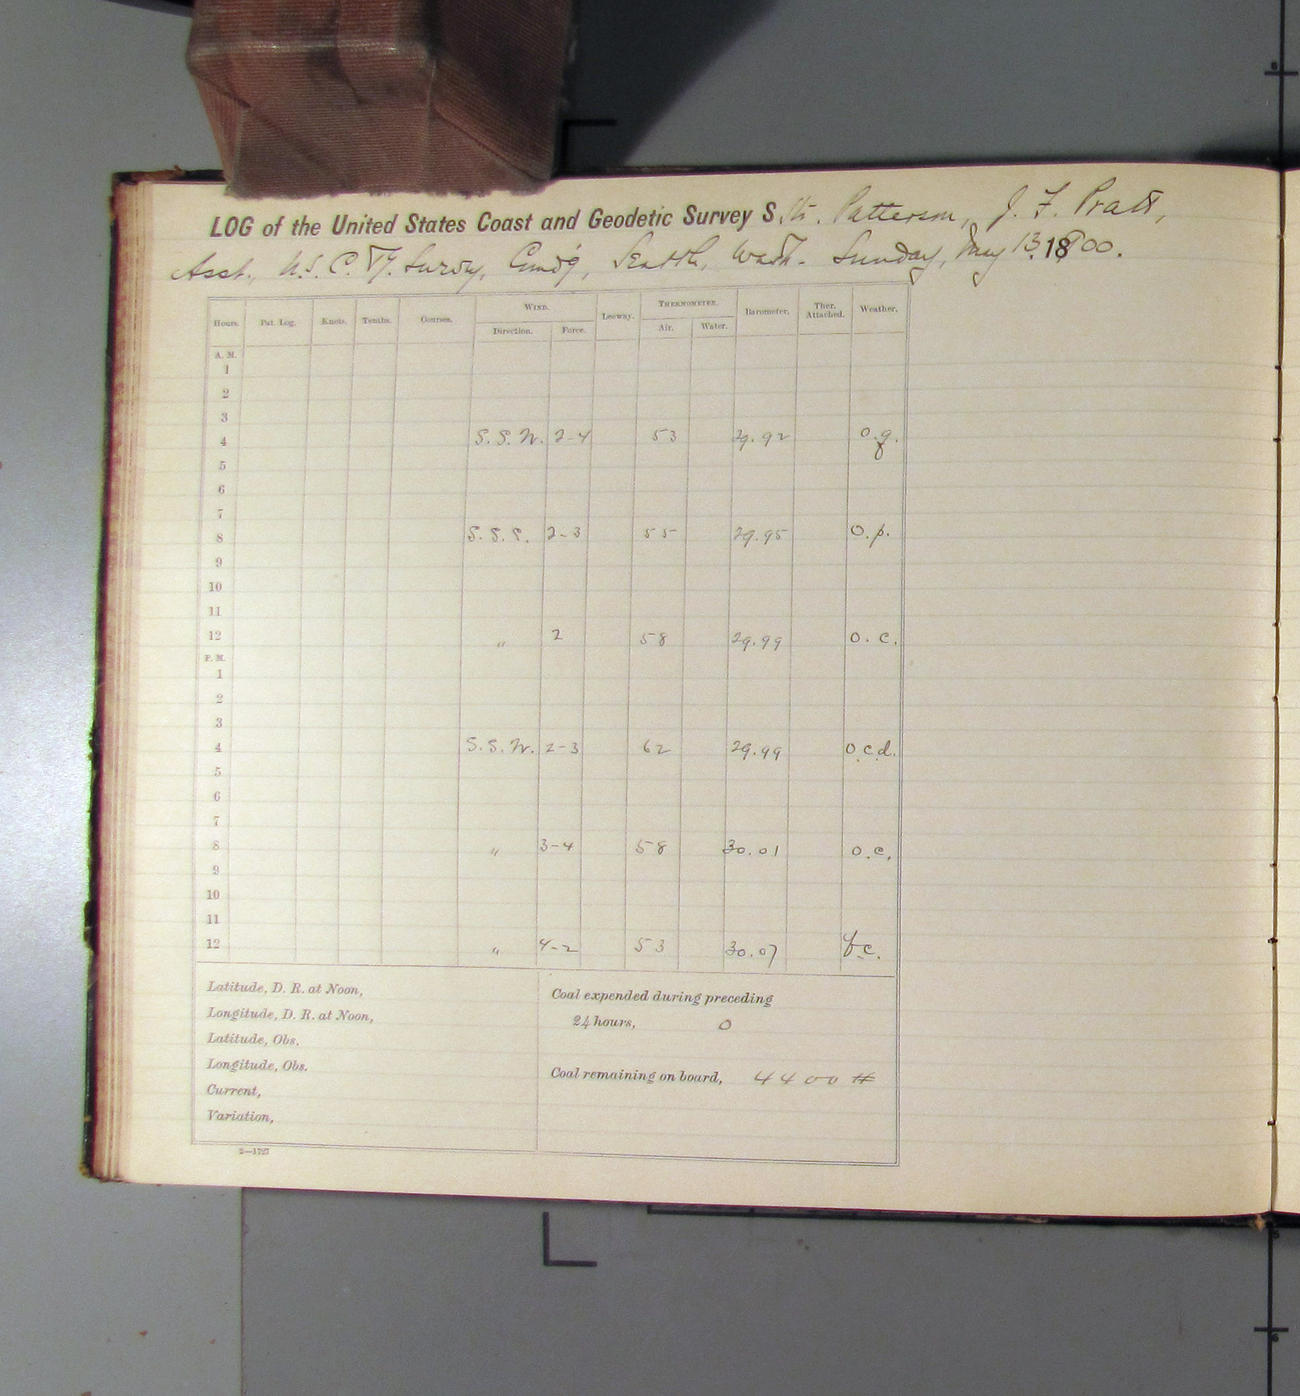 LOG of the United States Coast and Geodetic Survey S.Str. Patterson, J. F. Pratt,
Asst., U.S.C. & G. Survey, Comd'g, Seattle, Wash. Sunday, May 13, 1900.
Hours. Pat. Log. Knots. Tenths. Courses. WIND. Leeway. THERMOMETER. Barometer. Ther. Attached. Weather.
Direction. Force. Air. Water.
A. M.
1
2
3
4 S.S.W. 2-4 53 29.92 o.g.
5
6
7
8 S.S.E. 2-3 55 29.95 o.p.
9
10
11
12 " 2 58 29.99 o.c.
P. M.
1
2
3
4 S.S.W. 2-3 62 29.99 o.c.d.
5
6
7
8 " 3-4 58 30.01 o.c.
9
10
11
12 " 4-2 53 30.07 b.c.
Latitude, D. R. at Noon,
Longitude, D. R. at Noon,
Latitude, Obs.
Longitude, Obs.
Current,
Variation,
Coal expended during preceding
24 hours, 0
Coal remaining on board, 4400 #
2—1727